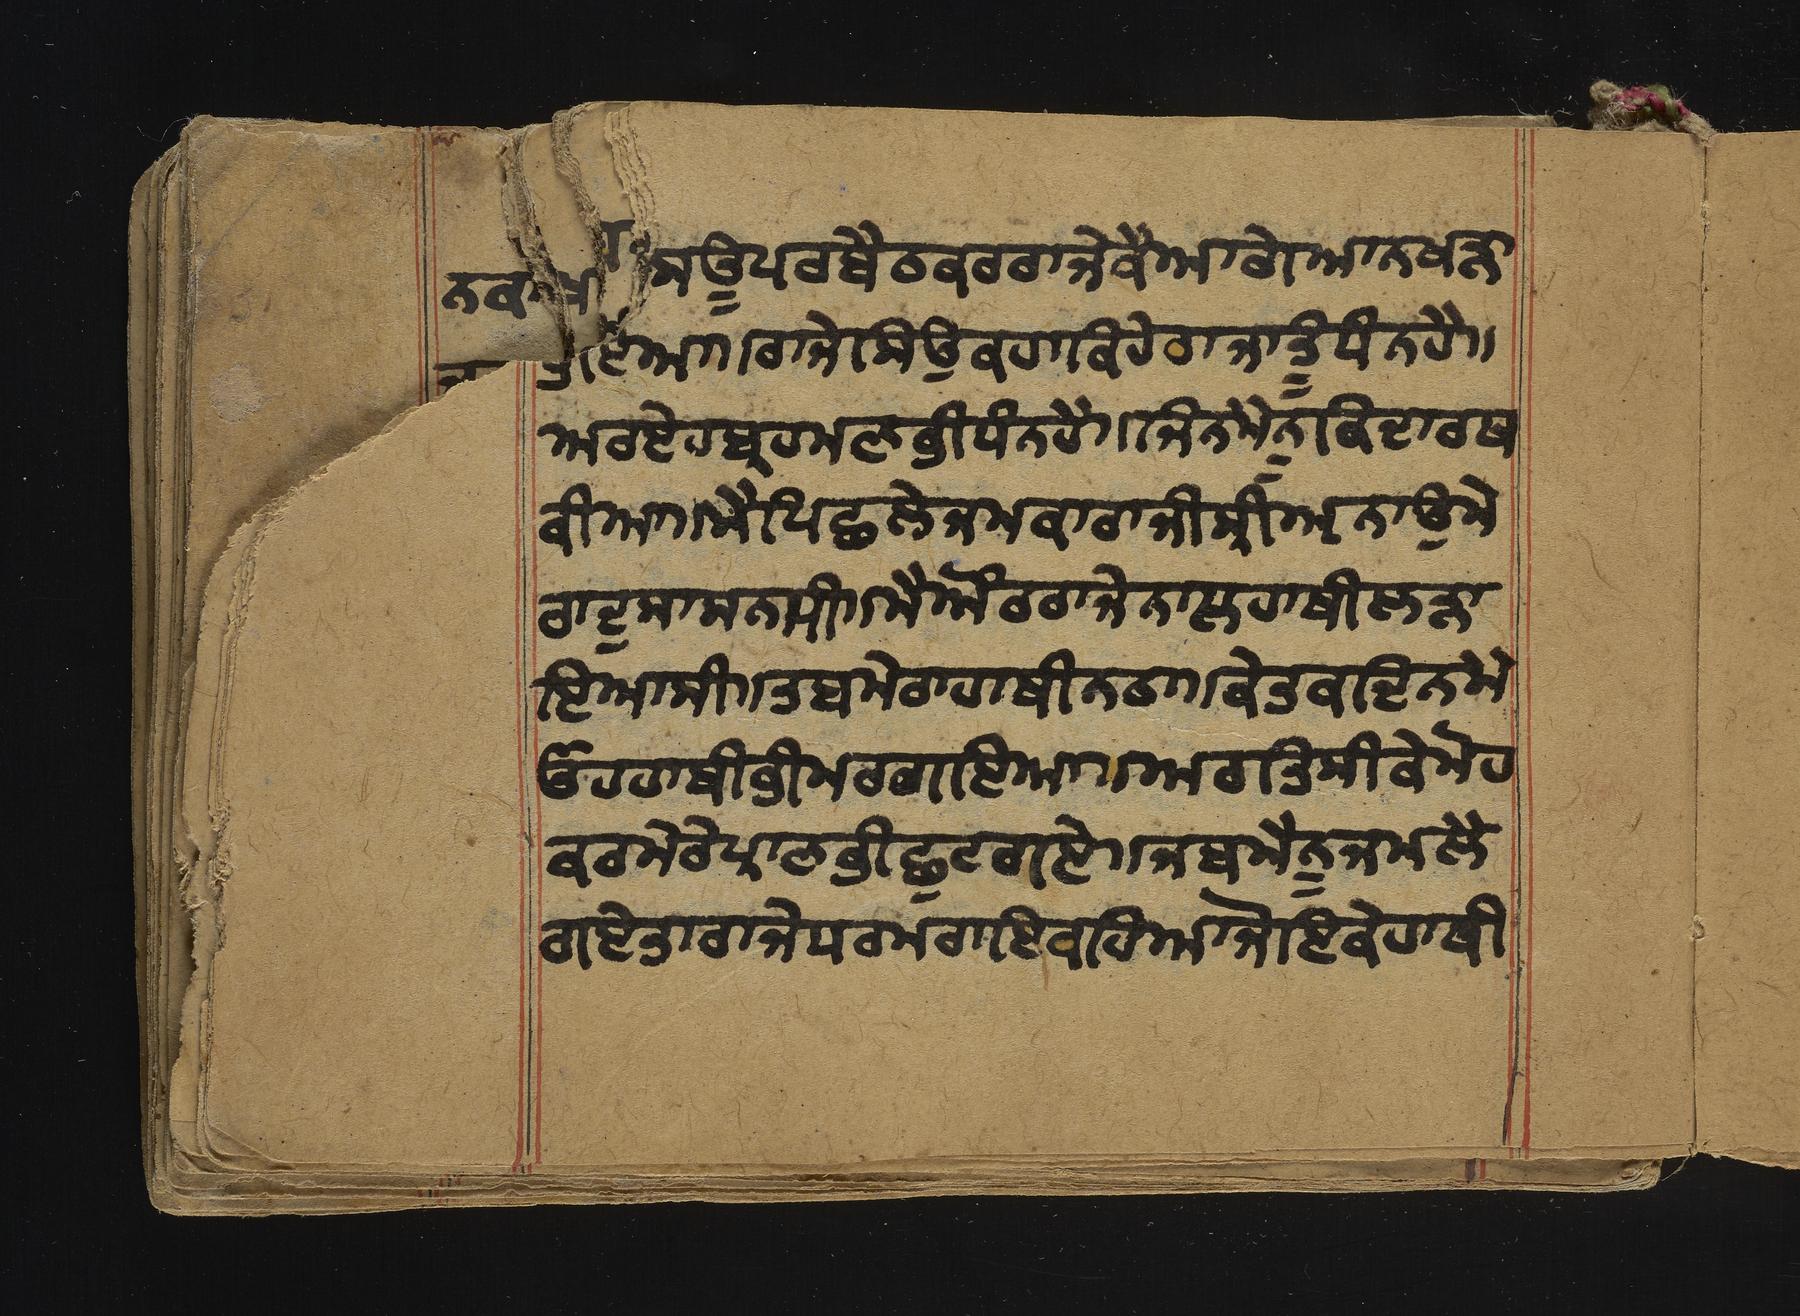 ਸਊਪਰਬੈਠਕਰਰਾਜੇਕੈਆਗੇਆਨਖੜਾ
ਹੋਇਆ॥ਰਾਜੇਸਿਉਕਹਾਕਿਹੇਰਾਜਾਤੂੰਧੰਨਹੈ॥
ਅਰਏਹਬ੍ਰਹਮਣਭੀਧੰਨਹੈ॥ਜਿਨਮੇਨੂਕਿਦਾਰਖ
ਕੀਆ॥ਮੈਪਿਛਲੇਜਮਕਾਰਾਜੀਸ੍ਰੀਅਨਾਉਮੇ
ਰਾਦੁਸਾਸਨਥੀ॥ਮੈਔਰਰਾਜੇਨਾਲਹਾਥੀਲੜਾ
ਇਆਸੀ॥ਤਬਮੇਰਾਹਾਥੀਨਠਾ॥ਕੇਤਕਦਿਨਮੇ
ਓਹਹਾਥੀਭੀਮਰਗਇਆ॥ਅਰਤਿਸੀਕੇਮੋਹ
ਕਰਮੇਰੇਪ੍ਰਾਣਭੀਛੂਟਗਏ॥ਜਬਮੈਨੂਜਮਲੈ
ਗਏਤਾਰਾਜੇਧਰਮਰਾਇਕਹਿਆਜੋਇਕੇਹਾਥੀ
ਨਕਾ